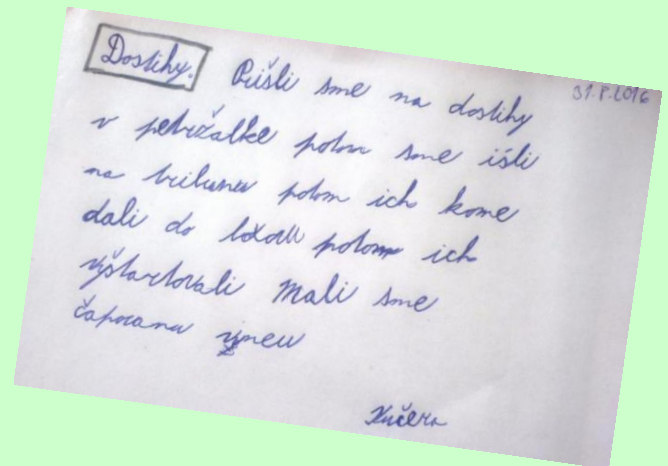 Dostihy. Prišli sme na dostihy
31.8.2016
v petržalke potom sme išli
na tribunu potom ich kone
dali do boxou potom ich
vyštartovali Mali sme
čapovanu
Kučera